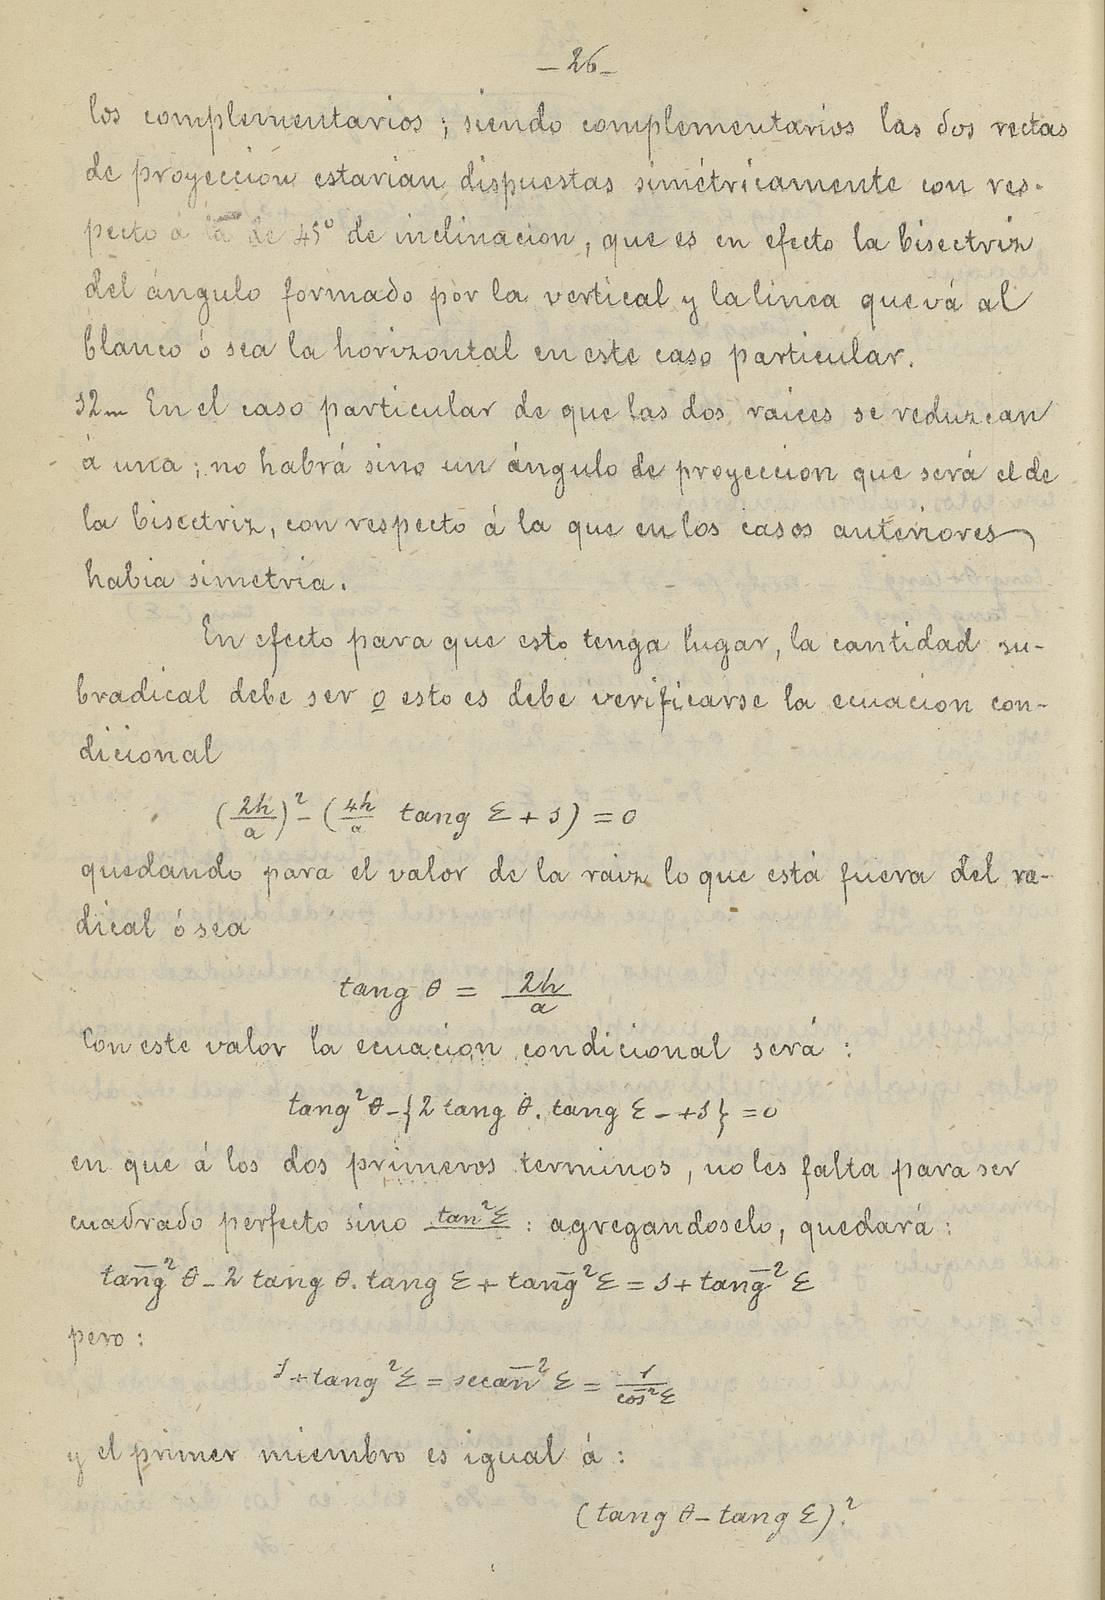 - 26 -
los complementarios; siendo complementarios las dos rectas
de proyeccion estarian dispuestas simétricamente con res-
pecto á la de 45° de inclinacion, que es en efecto la bisectriz
del ángulo formado por la vertical y la linea que vá al
blanco ó sea la horizontal en este caso particular.
12- En el caso particular de que las dos raices se reduzcan
á una; no habrá sino un ángulo de proyeccion que será el de
la bisectriz, con respecto á la que en los casos anteriores
habia simetria.
En efecto para que esto tenga lugar, la cantidad su-
bradical debe ser o esto es debe verificarse la ecuacion con-
dicional
(2h/a)² - (4h/a tang Ɛ + 1) = 0
quedando para el valor de la raiz lo que está fuera del ra-
dical ó sea
tang θ = 2h/a
Con este valor la ecuacion condicional será:
tang² θ - {2 tang θ. tang Ɛ - + 1} = 0
en que á los dos primeros terminos, no les falta para ser
cuadrado perfecto sino tan² Ɛ : agregandoselo, quedará:
tang² θ - 2 tang θ. tang Ɛ + tang² Ɛ = 1 + tang² Ɛ
pero:
1 + tang² Ɛ = secan² Ɛ = 1/cos² Ɛ
y el primer miembro es igual á:
(tang θ - tang Ɛ)².